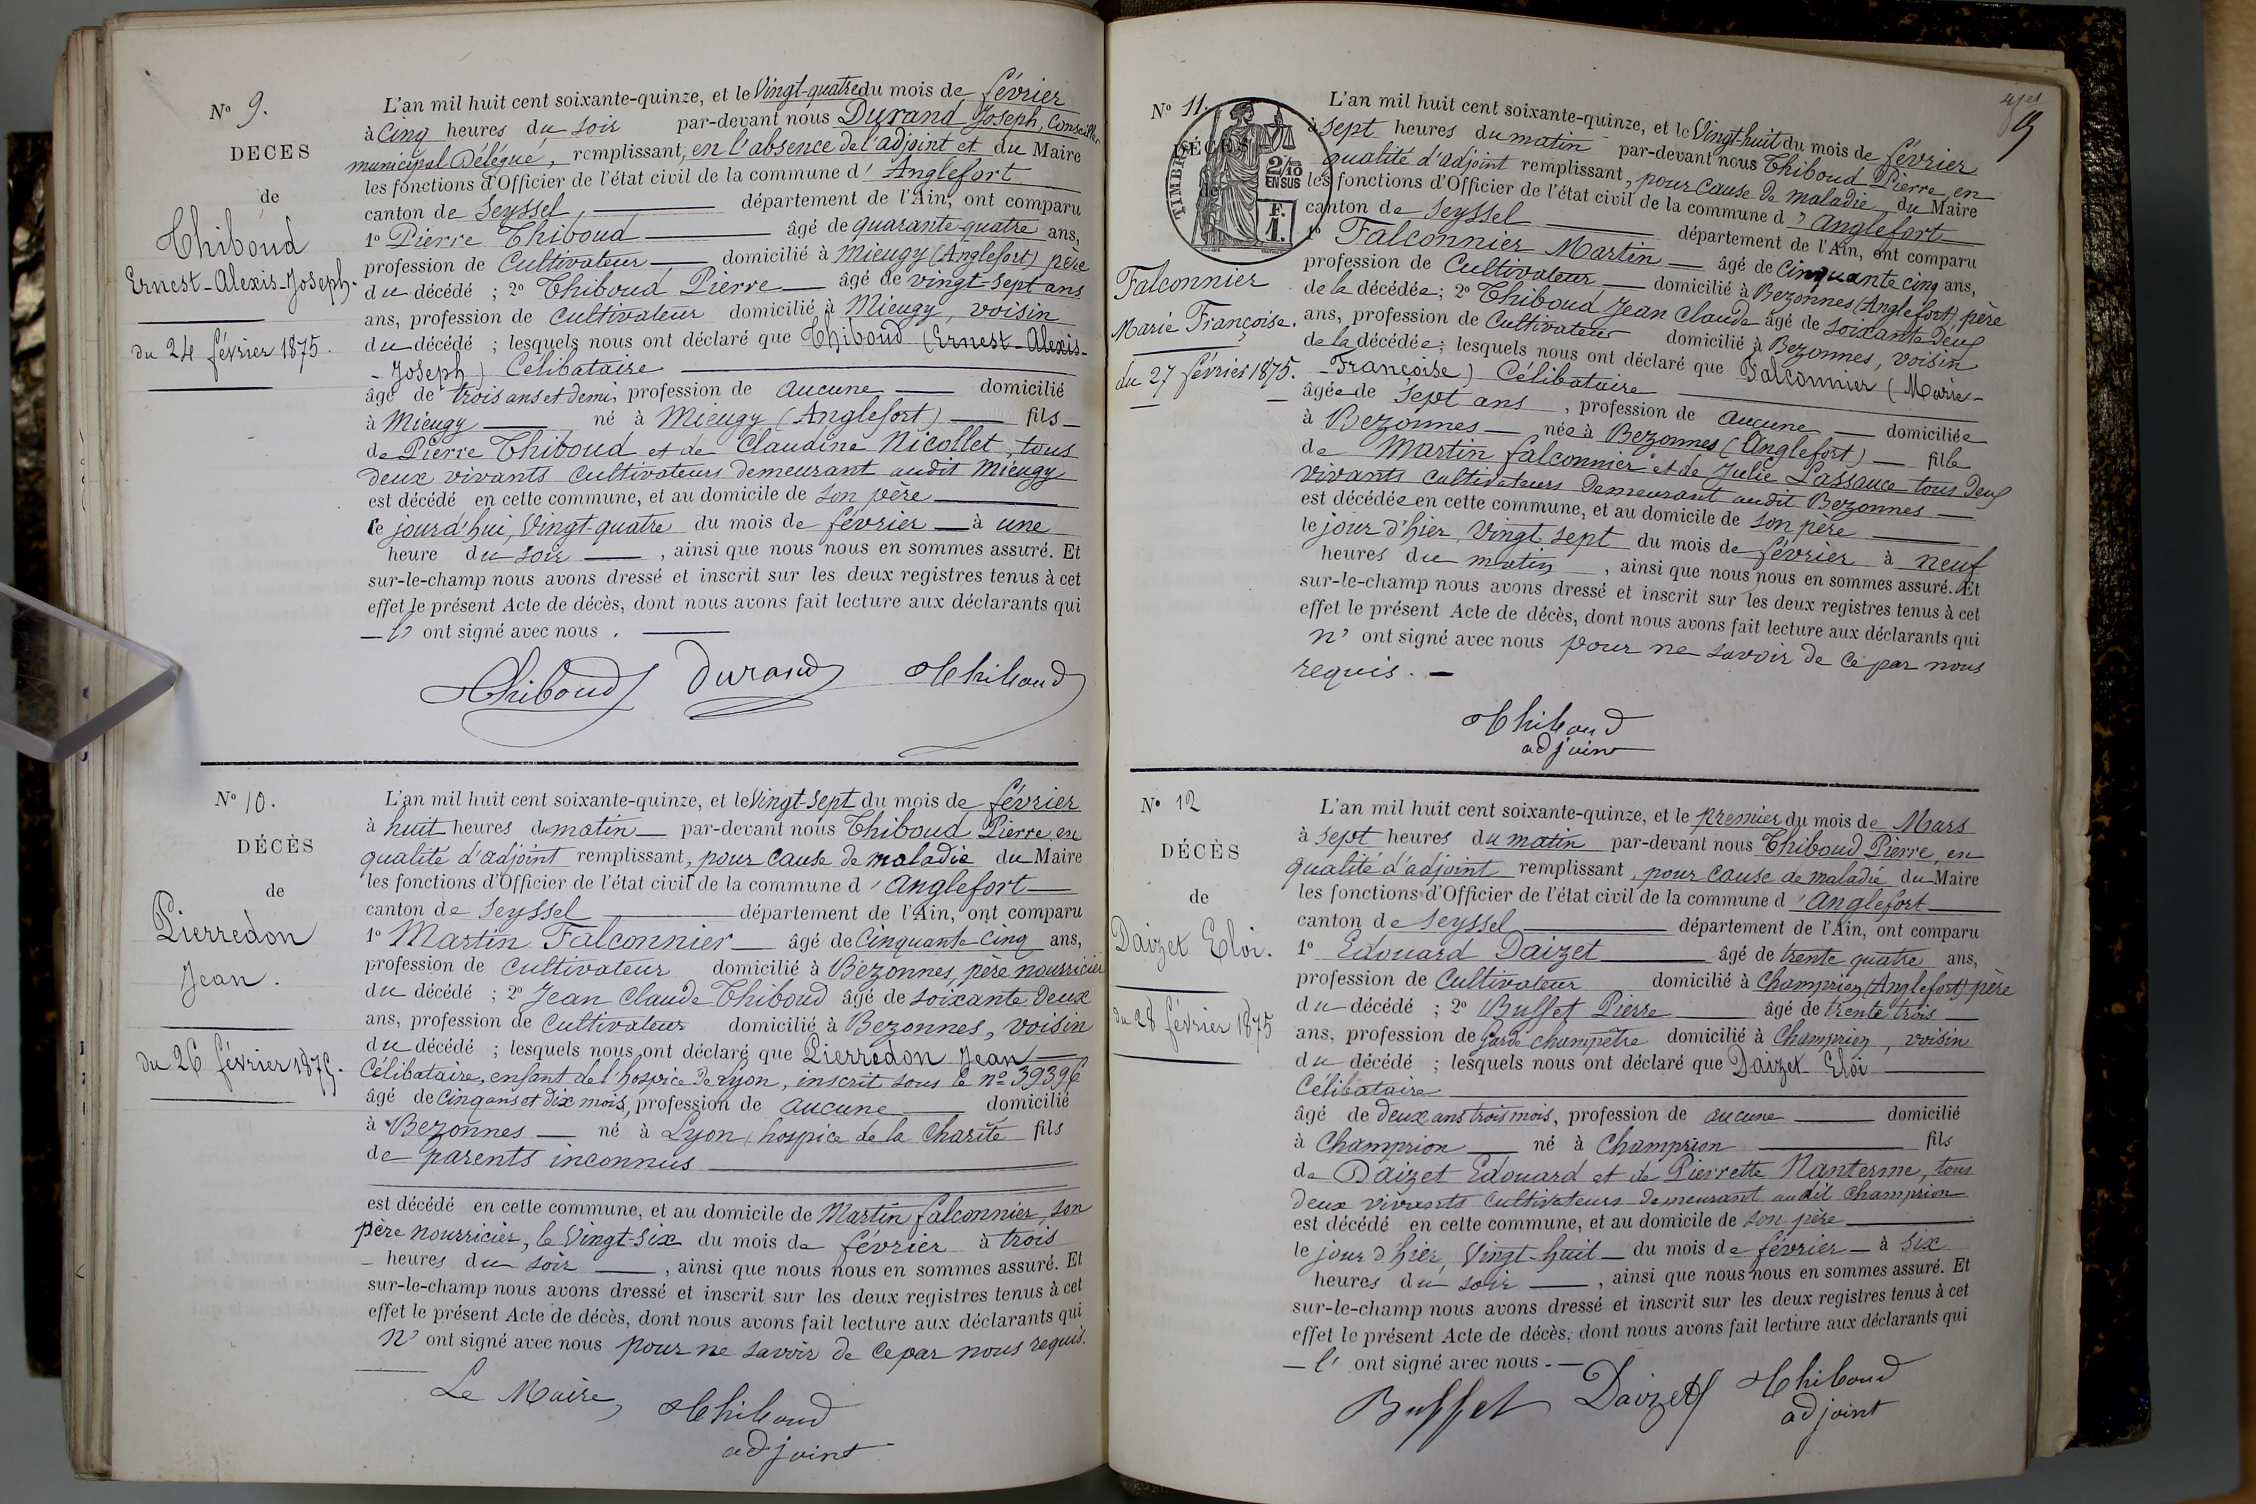 N° 9.
DECES
de
Thiboud
Ernest-Alexis-Joseph.
du 24 février 1875.
L'an mil huit cent soixante-quinze, et le Vingt-quatre du mois de février
à Cinq heures du soir par-devant nous Durand Joseph, Conseiller
municipal Délégué, remplissant, en l'absence de l'adjoint et du Maire
les fonctions d'Officier de l'état civil de la commune d'Anglefort
canton de Seyssel, département de l'Ain, ont comparu
1° Pierre Thiboud âgé de quarante-quatre ans,
profession de Cultivateur domicilié à Mieugy (Anglefort) père
du décédé ; 2° Thiboud Pierre âgé de vingt-sept ans
ans, profession de Cultivateur domicilié à Mieugy, voisin
du décédé ; lesquels nous ont déclaré que Thiboud (Ernest-Alexis-
-Joseph) Célibataire
âgé de trois ans et demi, profession de aucune domicilié
à Mieugy né à Mieugy (Anglefort) fils
de Pierre Thiboud et de Claudine Nicollet, tous
deux vivants cultivateurs demeurant audit Mieugy
est décédé en cette commune, et au domicile de son père
ce jourd'hui, Vingt quatre du mois de février à une
heure du soir, ainsi que nous nous en sommes assuré. Et
sur-le-champ nous avons dressé et inscrit sur les deux registres tenus à cet
effet le présent Acte de décès, dont nous avons fait lecture aux déclarants qui
l' ont signé avec nous.
Thiboud Durand Thiboud
N° 10.
DÉCÈS
de
Pierredon
Jean.
du 26 février 1875.
L'an mil huit cent soixante-quinze, et le Vingt-sept du mois de février
à huit heures du matin par-devant nous Thiboud Pierre, en
qualité d'adjoint remplissant, pour cause de maladie du Maire
les fonctions d'Officier de l'état civil de la commune d'Anglefort
canton de Seyssel département de l'Ain, ont comparu
1° Martin Falconnier âgé de Cinquante-Cinq ans,
profession de cultivateur domicilié à Bezonnes, père nourricier
du décédé ; 2° Jean Claude Thiboud âgé de soixante deux
ans, profession de cultivateur domicilié à Bezonnes, voisin
du décédé ; lesquels nous ont déclaré que Pierredon Jean
Célibataire, enfant de l'hospice de Lyon, inscrit sous le n° 39396
âgé de Cinq ans et dix mois, profession de aucune domicilié
à Bezonnes né à Lyon, hospice de la Charité fils
de parents inconnus
est décédé en cette commune, et au domicile de Martin falconnier, son
père nourricier, le Vingt-six du mois de février à trois
heures du soir, ainsi que nous nous en sommes assuré. Et
sur-le-champ nous avons dressé et inscrit sur les deux registres tenus à cet
effet le présent Acte de décès, dont nous avons fait lecture aux déclarants qui
n' ont signé avec nous pour ne savoir de ce par nous requis.
Le Maire, Thiboud
adjoint
N° 11.
DÉCÈS
de
TIMBRE
2/10
EN SUS
F.
1.
Falconnier
Marie Françoise.
du 27 février 1875.
L'an mil huit cent soixante-quinze, et le Vingt-huit du mois de février
à sept heures du matin par-devant nous Thiboud Pierre, en
qualité d'adjoint remplissant, pour cause de maladie du Maire
les fonctions d'Officier de l'état civil de la commune d'Anglefort
canton de Seyssel département de l'Ain, ont comparu
1° Falconnier Martin âgé de Cinquante cinq ans,
profession de Cultivateur domicilié à Bezonnes (Anglefort) père
de la décédée ; 2° Thiboud Jean Claude âgé de soixante Deux
ans, profession de Cultivateur domicilié à Bezonnes, voisin
de la décédée ; lesquels nous ont déclaré que Falconnier (Marie-
-Françoise) Célibataire
âgée de Sept ans, profession de aucune domiciliée
à Bezonnes née à Bezonnes (Anglefort) fille
de Martin falconnier et de Julie Lassauce tous deux
vivants cultivateurs demeurant audit Bezonnes
est décédée en cette commune, et au domicile de son père
le jour d'hier, vingt sept du mois de février à neuf
heures du matin, ainsi que nous nous en sommes assuré. Et
sur-le-champ nous avons dressé et inscrit sur les deux registres tenus à cet
effet le présent Acte de décès, dont nous avons fait lecture aux déclarants qui
n' ont signé avec nous pour ne savoir de ce par nous
requis.
Thiboud
adjoint
N° 12
DÉCÈS
de
Daizet Eloi.
du 28 février 1875
L'an mil huit cent soixante-quinze, et le premier du mois de Mars
à sept heures du matin par-devant nous Thiboud Pierre, en
qualité d'adjoint remplissant, pour cause de maladie du Maire
les fonctions d'Officier de l'état civil de la commune d'Anglefort
canton de Seyssel département de l'Ain, ont comparu
1° Edouard Daizet âgé de trente quatre ans,
profession de Cultivateur domicilié à Champrion (Anglefort) père
du décédé ; 2° Buffet Pierre âgé de trente trois
ans, profession de Garde champêtre domicilié à Champrion, voisin
du décédé ; lesquels nous ont déclaré que Daizet Eloi
Célibataire
âgé de deux ans trois mois, profession de aucune domicilié
à Champrion né à Champrion fils
de Daizet Edouard et de Pierrette Nanterme, tous
deux vivants cultivateurs demeurant audit Champrion
est décédé en cette commune, et au domicile de son père
le jour d'hier, Vingt-huit du mois de février à six
heures du soir, ainsi que nous nous en sommes assuré. Et
sur-le-champ nous avons dressé et inscrit sur les deux registres tenus à cet
effet le présent Acte de décès, dont nous avons fait lecture aux déclarants qui
l' ont signé avec nous.
Buffet Daizet Thiboud
adjoint